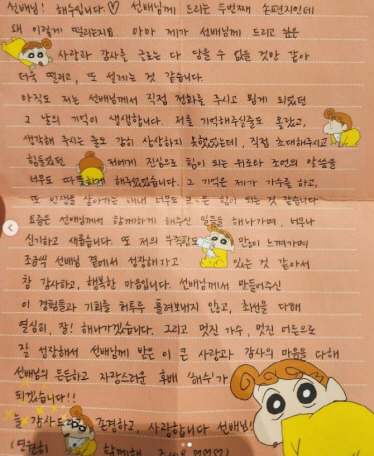 선배님! 해수입니다♡ 선배님께 드리는 두번째 손편지인데
왜 이렇게 떨리는지요.. 아마 제가 선배님께 드리고 싶은
사랑과 감사를 글로는 다 담을 수 없을 것만 같아
더욱 떨리고, 또 설레는 것 같습니다.
아직도 저는 선배님께서 직접 전화를 주시고 뵙게 되었던
그 날의 기억이 생생합니다. 저를 기억해주실줄도 몰랐고,
생각해 주시는 줄도 감히 상상하지 못했었는데, 직접 초대해주시고
힘들었던 저에게 진심으로 힘이 되는 위로와 조언의 말씀을
너무도 따뜻하게 해주셨습니다. 그 기억은 제가 가수를 하고,
또 인생을 살아가는 내내 너무도 큰 힘이 되는 것 같습니다
요즘은 선배님께서 함께하게 해주신 일들을 해나가며, 너무나
신기하고 새롭습니다. 또 저의 부족함도 많이 느껴가며
조금씩 선배님 곁에서 성장해가고 있는 것 같아서
참 감사하고, 행복한 마음입니다. 선배님께서 만들어주신
이 경험들과 기회를 허투루 흘려보내지 않고, 최선을 다해
열심히, 잘! 해나가겠습니다. 그리고 멋진 가수, 멋진 어른으로
잘 성장해서 선배님께 받은 이 큰 사랑과 감사의 마음을 다해
선배님의 든든하고 자랑스러운 후배 '해수'가
되겠습니다!!
늘 감사드리고 존경하고, 사랑합니다 선배님!
(영원히 함께해